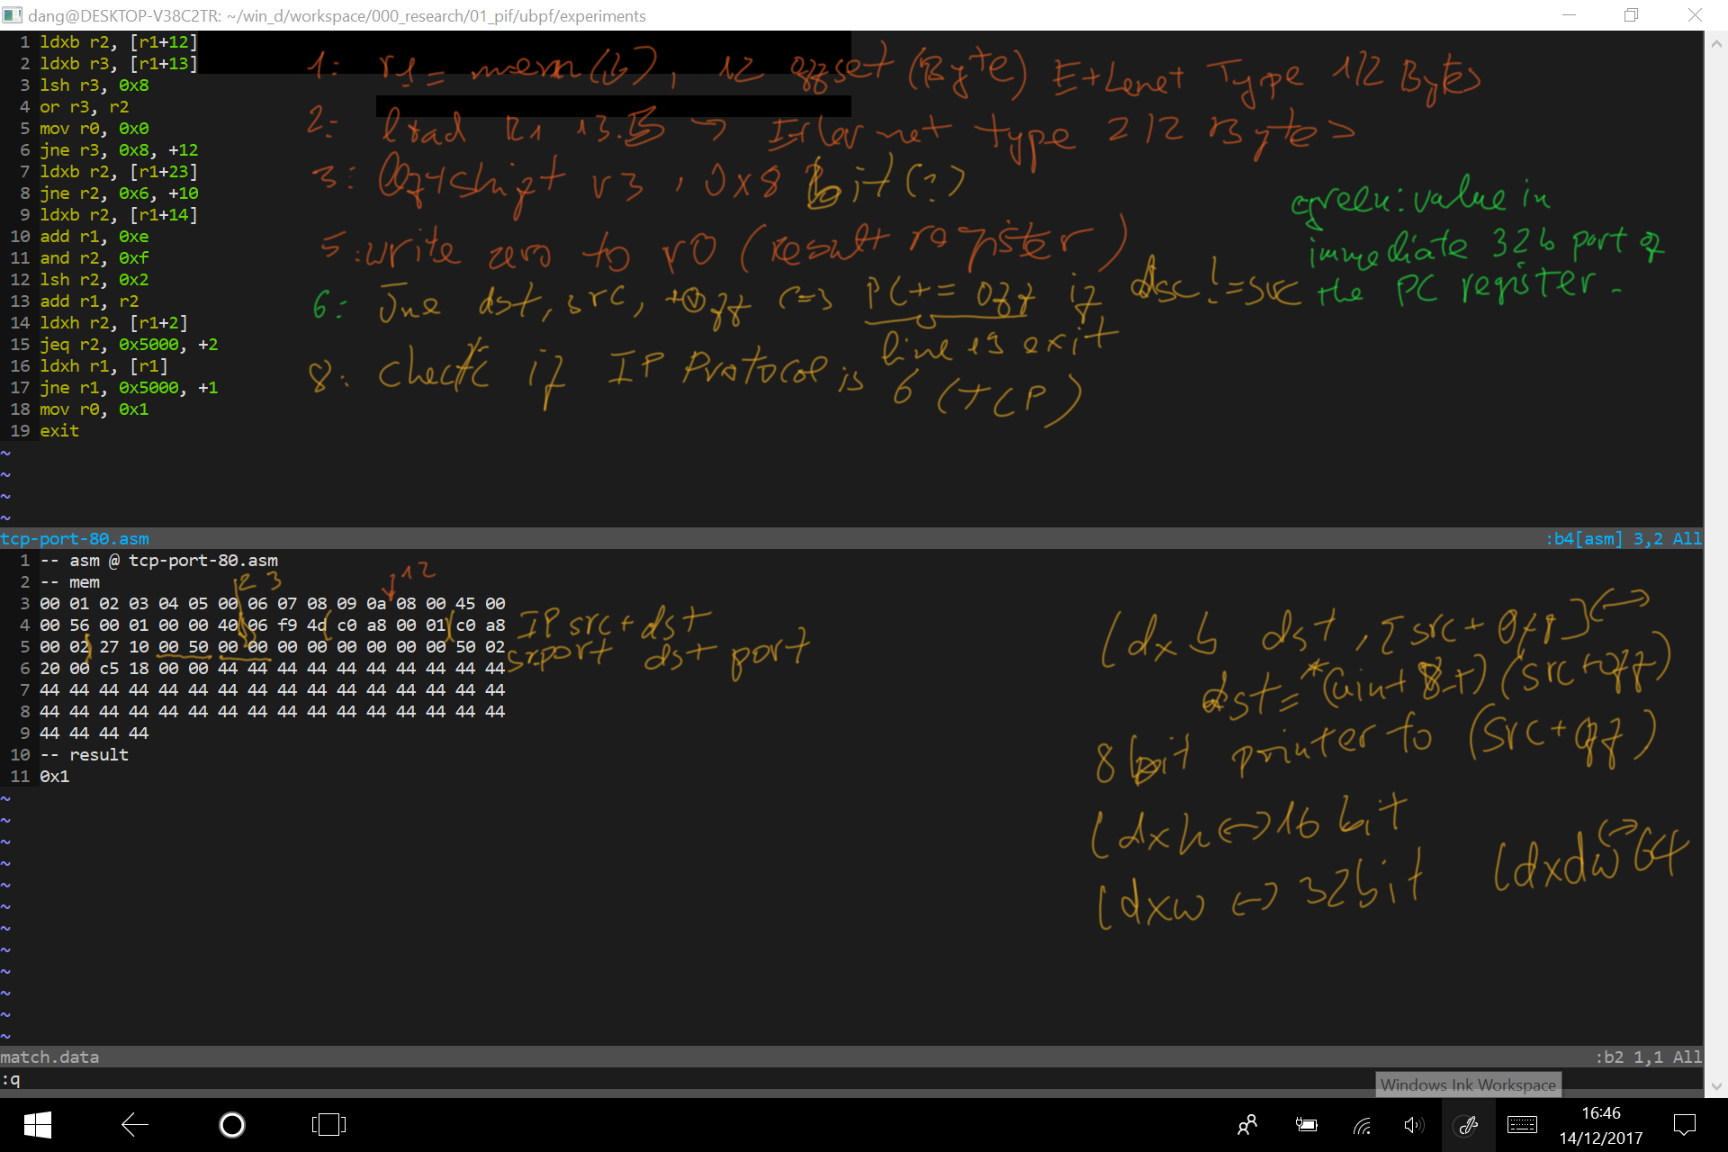 dang@DESKTOP-V38C2TR: ~/win_d/workspace/000_research/01_pif/ubpf/experiments
1 ldxb r2, [r1+12]
2 ldxb r3, [r1+13]
3 lsh r3, 0x8
4 or r3, r2
5 mov r0, 0x0
6 jne r3, 0x8, +12
7 ldxb r2, [r1+23]
8 jne r2, 0x6, +10
9 ldxb r2, [r1+14]
10 add r1, 0xe
11 and r2, 0xf
12 lsh r2, 0x2
13 add r1, r2
14 ldxh r2, [r1+2]
15 jeq r2, 0x5000, +2
16 ldxh r1, [r1]
17 jne r1, 0x5000, +1
18 mov r0, 0x1
19 exit
~
~
~
~
1: r1 = mem(b), 12 offset (Byte) Type 1/2 Bytes
2: type 2/2 Bytes
3: r3, 0x8 bit(?)
5: write zero to r0 (result register)
6: Jne dst, src, +off <=> PC += off if != src
line 19 exit
8: check if IP Protocol is 6 (TCP)
green: value in
immediate 32b part of
the PC register.
tcp-port-80.asm :b4[asm] 3,2 All
1 -- asm @ tcp-port-80.asm
2 -- mem
3 00 01 02 03 04 05 00 06 07 08 09 0a 08 00 45 00
4 00 56 00 01 00 00 40 06 f9 4d c0 a8 00 01 c0 a8
5 00 02 27 10 00 50 00 00 00 00 00 00 00 00 50 02
6 20 00 c5 18 00 00 44 44 44 44 44 44 44 44 44 44
7 44 44 44 44 44 44 44 44 44 44 44 44 44 44 44 44
8 44 44 44 44 44 44 44 44 44 44 44 44 44 44 44 44
9 44 44 44 44
10 -- result
11 0x1
23
12
IP src + dst
dst port
ldxb dst, [src + off] <->
dst = *(uint8_t) (src+off)
8 bit pointer to (src+off)
ldxh <-> 16 bit
ldxw <-> 32 bit
ldxdw <-> 64
~
~
~
~
~
~
~
~
~
~
~
~
match.data :b2 1,1 All
:q
Windows Ink Workspace
16:46
14/12/2017